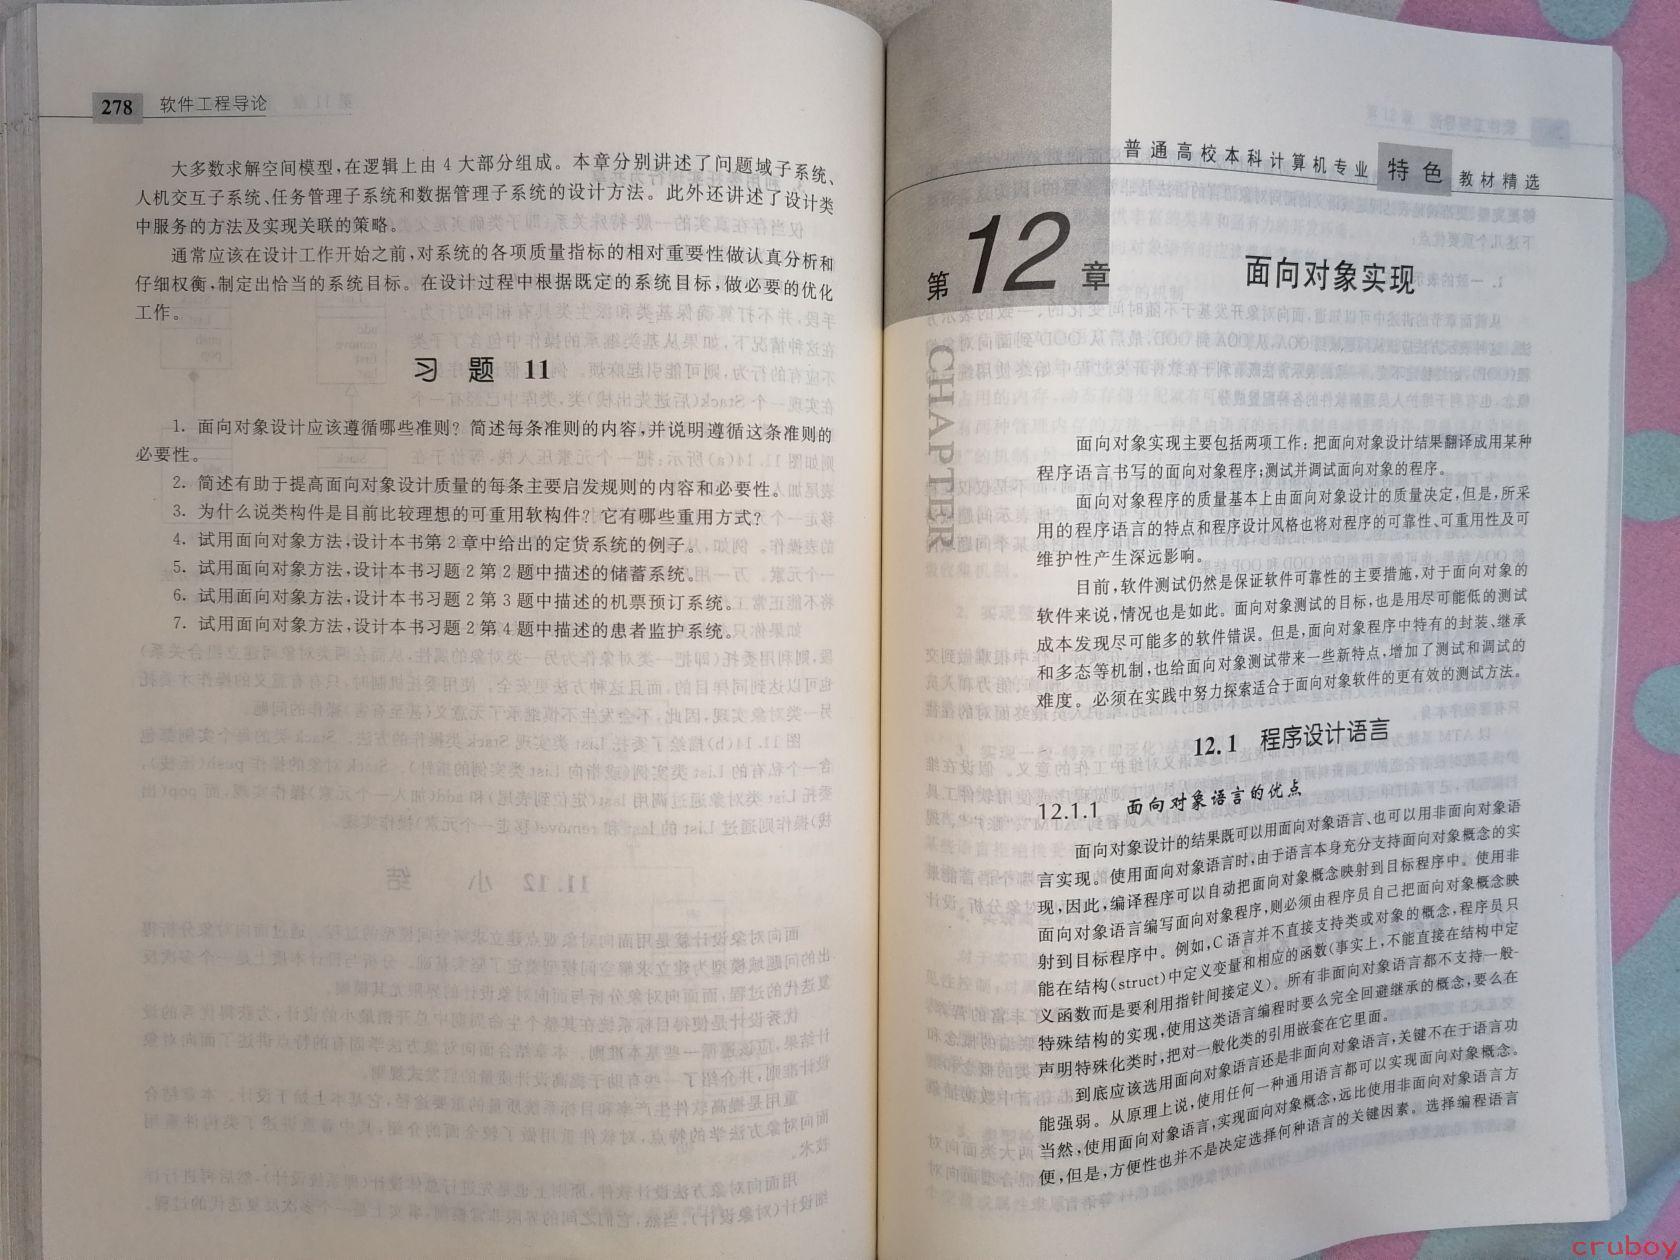 278 软件工程导论
大多数求解空间模型,在逻辑上由 4 大部分组成。本章分别讲述了问题域子系统、
人机交互子系统、任务管理子系统和数据管理子系统的设计方法。此外还讲述了设计类
中服务的方法及实现关联的策略。
通常应该在设计工作开始之前,对系统的各项质量指标的相对重要性做认真分析和
仔细权衡,制定出恰当的系统目标。在设计过程中根据既定的系统目标,做必要的优化
工作。
习 题 11
1. 面向对象设计应该遵循哪些准则?简述每条准则的内容,并说明遵循这条准则的
必要性。
2. 简述有助于提高面向对象设计质量的每条主要启发规则的内容和必要性。
3. 为什么说类构件是目前比较理想的可重用软构件?它有哪些重用方式?
4. 试用面向对象方法,设计本书第 2 章中给出的定货系统的例子。
5. 试用面向对象方法,设计本书习题 2 第 2 题中描述的储蓄系统。
6. 试用面向对象方法,设计本书习题 2 第 3 题中描述的机票预订系统。
7. 试用面向对象方法,设计本书习题 2 第 4 题中描述的患者监护系统。
普通高校本科计算机专业 特色 教材精选
第 12 章 面向对象实现
CHAPTER
面向对象实现主要包括两项工作:把面向对象设计结果翻译成用某种
程序语言书写的面向对象程序;测试并调试面向对象的程序。
面向对象程序的质量基本上由面向对象设计的质量决定,但是,所采
用的程序语言的特点和程序设计风格也将对程序的可靠性、可重用性及可
维护性产生深远影响。
目前,软件测试仍然是保证软件可靠性的主要措施,对于面向对象的
软件来说,情况也是如此。面向对象测试的目标,也是用尽可能低的测试
成本发现尽可能多的软件错误。但是,面向对象程序中特有的封装、继承
和多态等机制,也给面向对象测试带来一些新特点,增加了测试和调试的
难度。必须在实践中努力探索适合于面向对象软件的更有效的测试方法。
12.1 程序设计语言
12.1.1 面向对象语言的优点
面向对象设计的结果既可以用面向对象语言、也可以用非面向对象语
言实现。使用面向对象语言时,由于语言本身充分支持面向对象概念的实
现,因此,编译程序可以自动把面向对象概念映射到目标程序中。使用非
面向对象语言编写面向对象程序,则必须由程序员自己把面向对象概念映
射到目标程序中。例如,C 语言并不直接支持类或对象的概念,程序员只
能在结构(struct)中定义变量和相应的函数(事实上,不能直接在结构中定
义函数而是要利用指针间接定义)。所有非面向对象语言都不支持一般-
特殊结构的实现,使用这类语言编程时要么完全回避继承的概念,要么在
声明特殊化类时,把对一般化类的引用嵌套在它里面。
到底应该选用面向对象语言还是非面向对象语言,关键不在于语言功
能强弱。从原理上说,使用任何一种通用语言都可以实现面向对象概念。
当然,使用面向对象语言,实现面向对象概念,远比使用非面向对象语言方
便,但是,方便性也并不是决定选择何种语言的关键因素。选择编程语言
cruboy